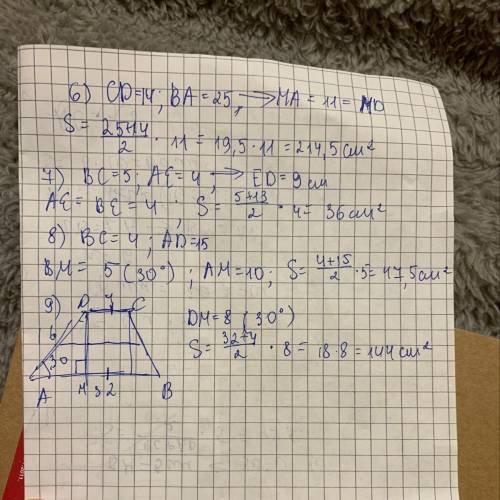 6) CD=14; BA=25, → MA = 11 = MD
S = 25+14/2 · 11 = 19,5·11 = 214,5 см²
7) BC=5; AE=4, → ED=9 см
AE = BE = 4 ; S = 5+13/2 · 4= 36 см²
8) BC=4; AD=15
BM= 5 (30°) ; AM=10; S= 4+15/2 ·5= 47,5см²
9) D 4 C
DM=8 (30°)
16
S= 32+4/2 · 8 = 18·8=144 см²
30
A M 32 B